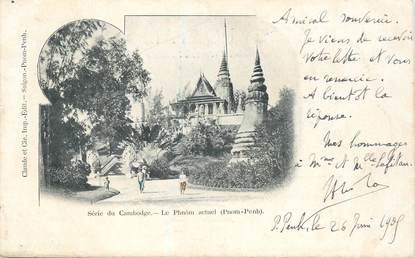 Claude et Cie, Imp.-Édit. — Saigon-Pnom-Penh.
Série du Cambodge. — Le Phnôm actuel (Pnom-Penh).
Amical souvenir.
Je viens de recevoir
votre lettre et vous
en remercie.
A bientôt la
réponse.
Mes hommages
à Mme et Mlle Capitan.
P. Penh, le 26 Juin 1905